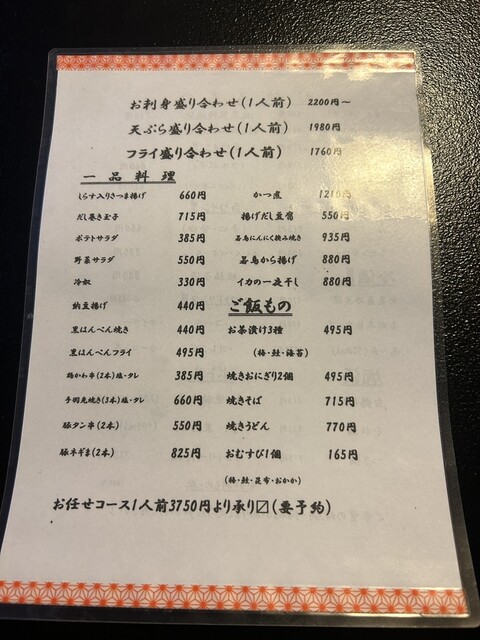 お刺身盛り合わせ(1人前) 2200円～
天ぷら盛り合わせ(1人前) 1980円
フライ盛り合わせ(1人前) 1760円
一品料理
しらす入りさつま揚げ 660円
だし巻き玉子 715円
ポテトサラダ 385円
野菜サラダ 550円
冷奴 330円
納豆揚げ 440円
黒はんぺん焼き 440円
黒はんぺんフライ 495円
鶏かわ串(2本)塩・タレ 385円
手羽先焼き(3本)塩・タレ 660円
豚タン串(2本) 550円
豚ネギま(2本) 825円
かつ煮 1210円
揚げだし豆腐 550円
若鳥にんにく揉み焼き 935円
若鳥から揚げ 880円
イカの一夜干し 880円
ご飯もの
お茶漬け3種 495円
(梅・鮭・海苔)
焼きおにぎり2個 495円
焼きそば 715円
焼きうどん 770円
おむすび1個 165円
(梅・鮭・昆布・おかか)
お任せコース1人前3750円より承り〼(要予約)